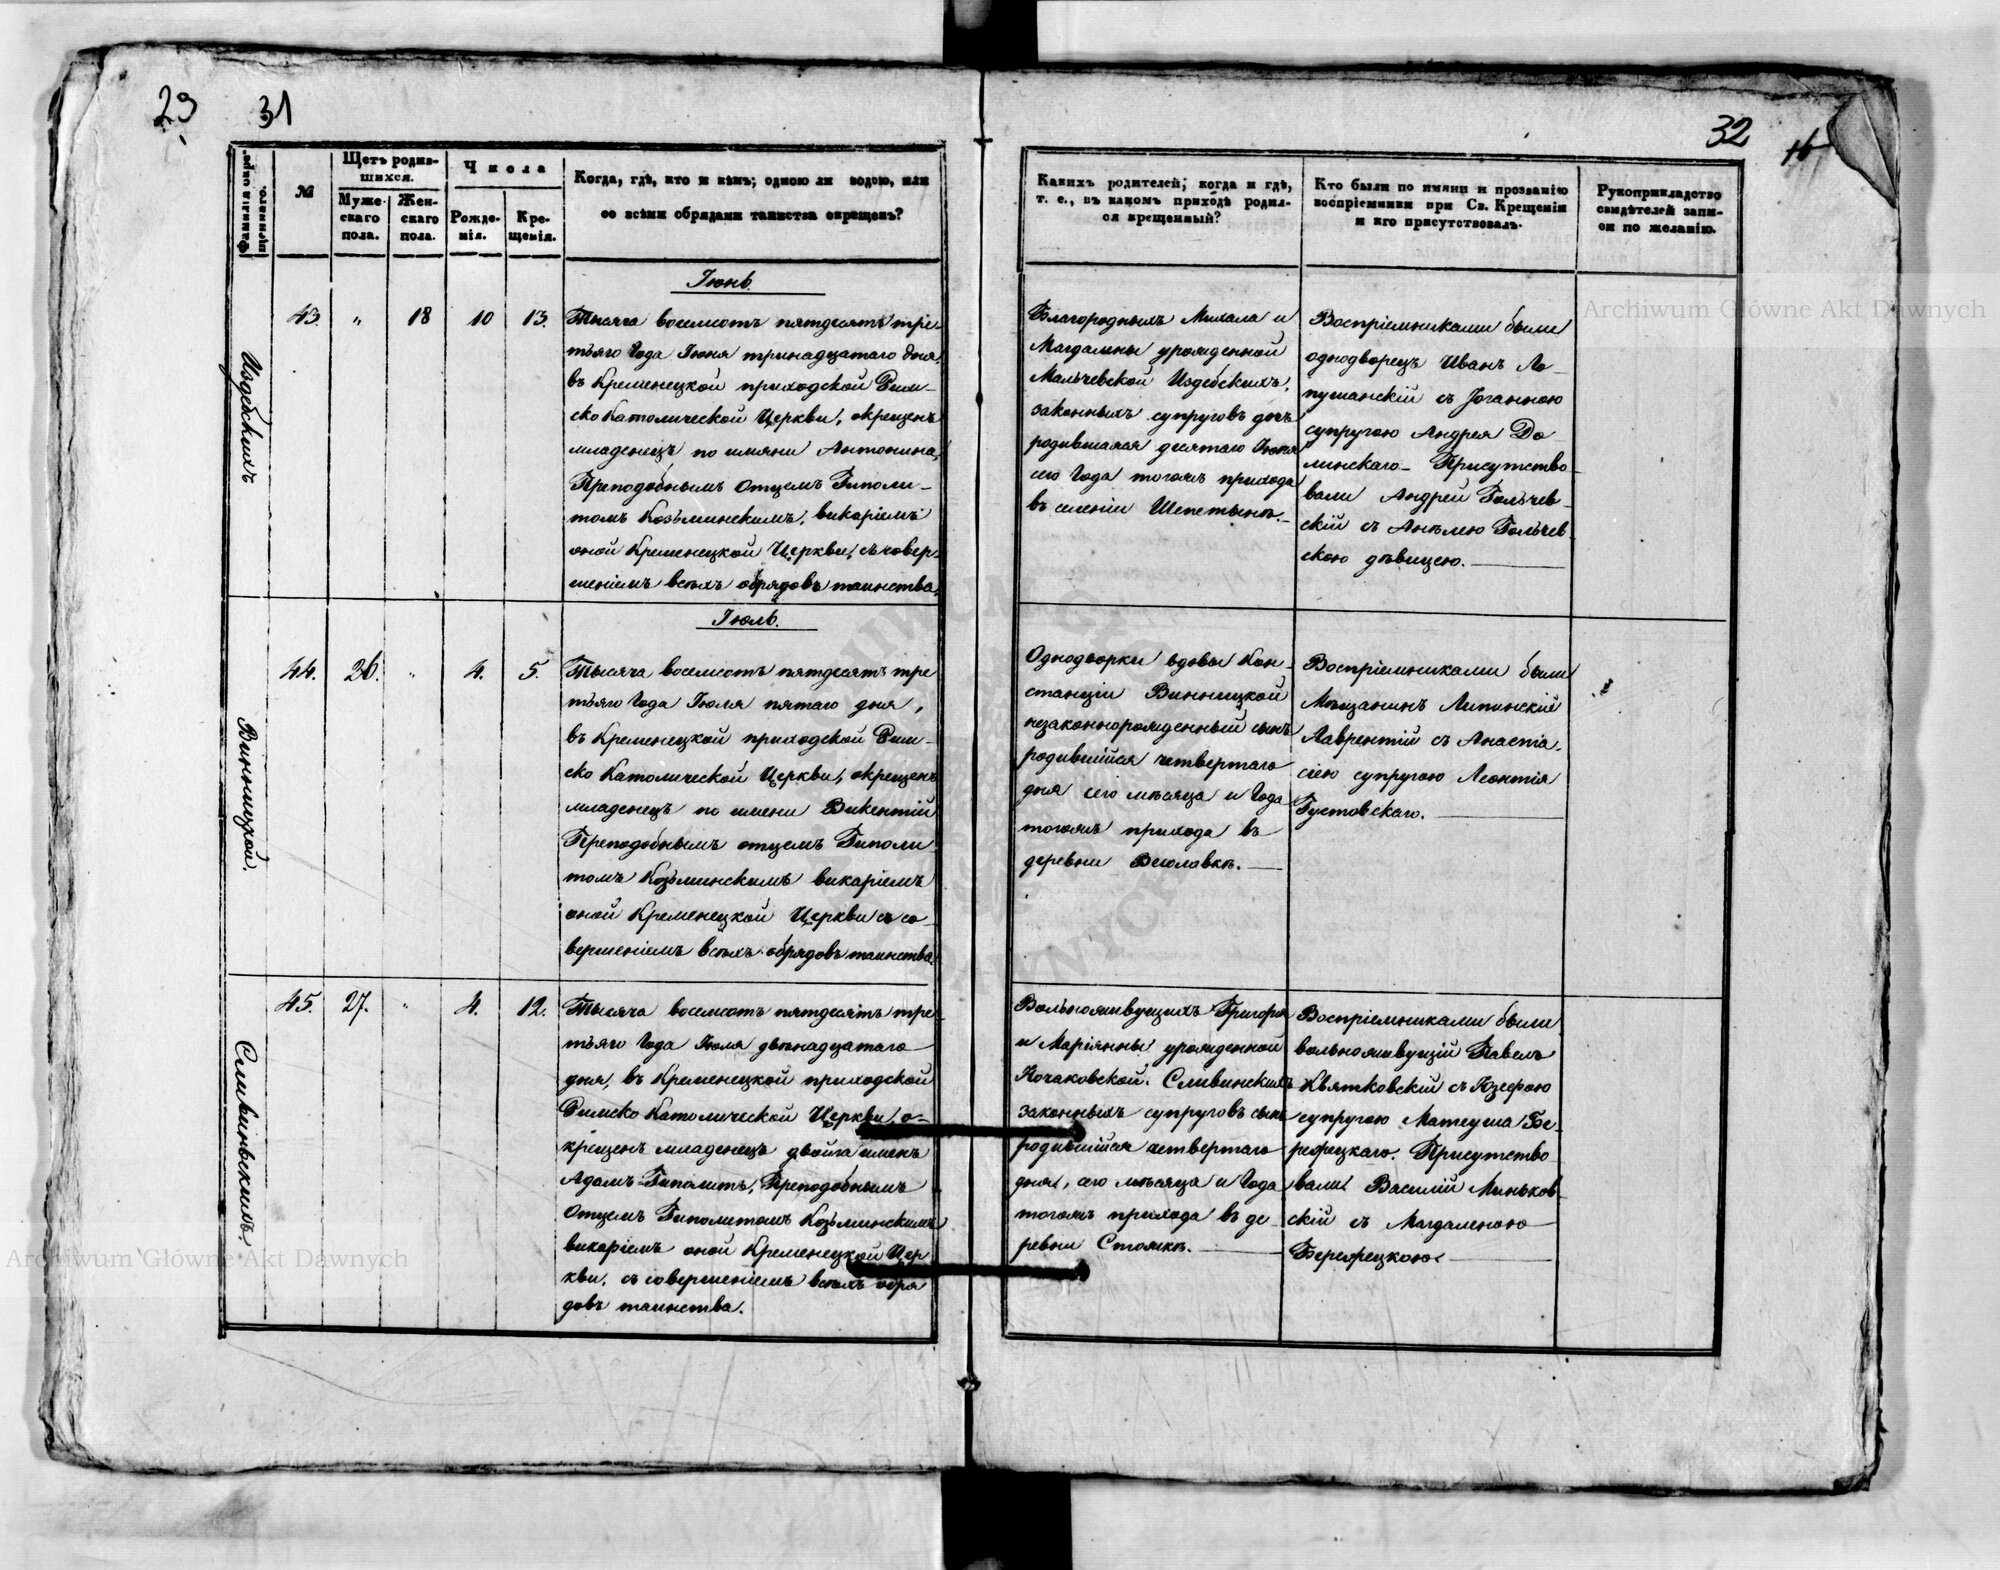 29 31
Фамилія окре-
щеннаго.
№
Щетъ родив-
шихся.
Муже-
скаго
пола.
Жен-
скаго
пола.
Числа
Рожде-
нія.
Кре-
щенія.
Когда, гдѣ, кто и кѣмъ; одною ли водою, или
со всѣми обрядами таинства окрещенъ?
Іюнь
Издебскихъ
43. „ 18 10 13.
Тысяча восемсотъ пятдесятъ тре-
тьяго Года Іюня тринадцатаго дня,
въ Кременецкой приходской Рим-
ско Католической Церкви, окрещенъ
младенецъ по имяни Антонина,
Преподобнымъ Отцемъ Гиполи-
томъ Козьминскимъ, викаріемъ
оной Кременецкой Церкви, съ совер-
шеніемъ всѣхъ обрядовъ таинства.
Іюль.
Винницкой.
44. 26. „ 4. 5.
Тысяча восемсотъ пятдесятъ тре
тьяго Года Іюля пятаго дня,
въ Кременецкой приходской Рим-
ско Католической Церкви, окрещенъ
младенецъ по имени Викентій
Преподобнымъ отцемъ Гиполи
томъ Козьминскимъ викаріемъ
оной Кременецкой Церкви съ со
вершеніемъ всѣхъ обрядовъ таинства.
Сливинскихъ.
45. 27. „ 4. 12.
Тысяча восемсотъ пятдесятъ тре-
тьяго Года Іюля двенадцатаго
дня, въ Кременецкой приходской
Римско Католической Церкви, о-
крещенъ младенецъ двойга именъ
Адамъ Гиполитъ, Преподобнымъ
Отцемъ Гиполитомъ Козьминскимъ
викаріемъ оной Кременецкой Цер
кви, съ совершеніемъ всѣхъ обря
довъ таинства.
32 16
Какихъ родителей; когда и гдѣ,
т. е., въ какомъ приходѣ родил-
ся крещенный?
Кто были по имяни и прозванію
воспріемники при Св. Крещеніи
и кто присутствовалъ.
Рукоприкладство
свидѣтелей запи-
си по желанію.
Благородныхъ Михала и
Магдалины урожденной
Мальчевской Издебскихъ,
законныхъ супруговъ дочь
родившаяся десятаго Іюня
сего Года тогожъ прихода
въ селеніи Шепетынѣ.
Воспріемниками были
однодворецъ Иванъ Ло-
пушанскій съ Іоганною
супругою Андрея До-
линскаго - Присутство-
вали Андрей Гольчев-
скій съ Анѣлею Гольчев-
скою дѣвицею.
Однодворки вдовы Кон-
станціи Винницкой
незаконнорожденный сынъ
родившійся четвертаго
дня сего мѣсяца и Года
тогожъ прихода въ
деревни Веселавкѣ.
Воспріемниками были
Мѣщанинъ Липинскій
Лаврентій съ Анастіа-
сіею супругою Леонтія
Густовскаго.
Вольноживущихъ Григорія
и Маріянны урожденной
Кочаковской Сливинскихъ
законныхъ супруговъ сынъ
родившійся четвертаго
дня, сего мѣсяца и Года
тогожъ прихода въ де-
ревни Стожкѣ.
Воспріемниками были
вольноживущій Павелъ
Квятковскій съ Юзефою
супругою Матеуша Бе-
режецкаго. Присутство
вали Василій Миньков-
скій съ Магдаленою
Бережецкою.
Archiwum Główne Akt Dawnych
Archiwum Główne Akt Dawnych